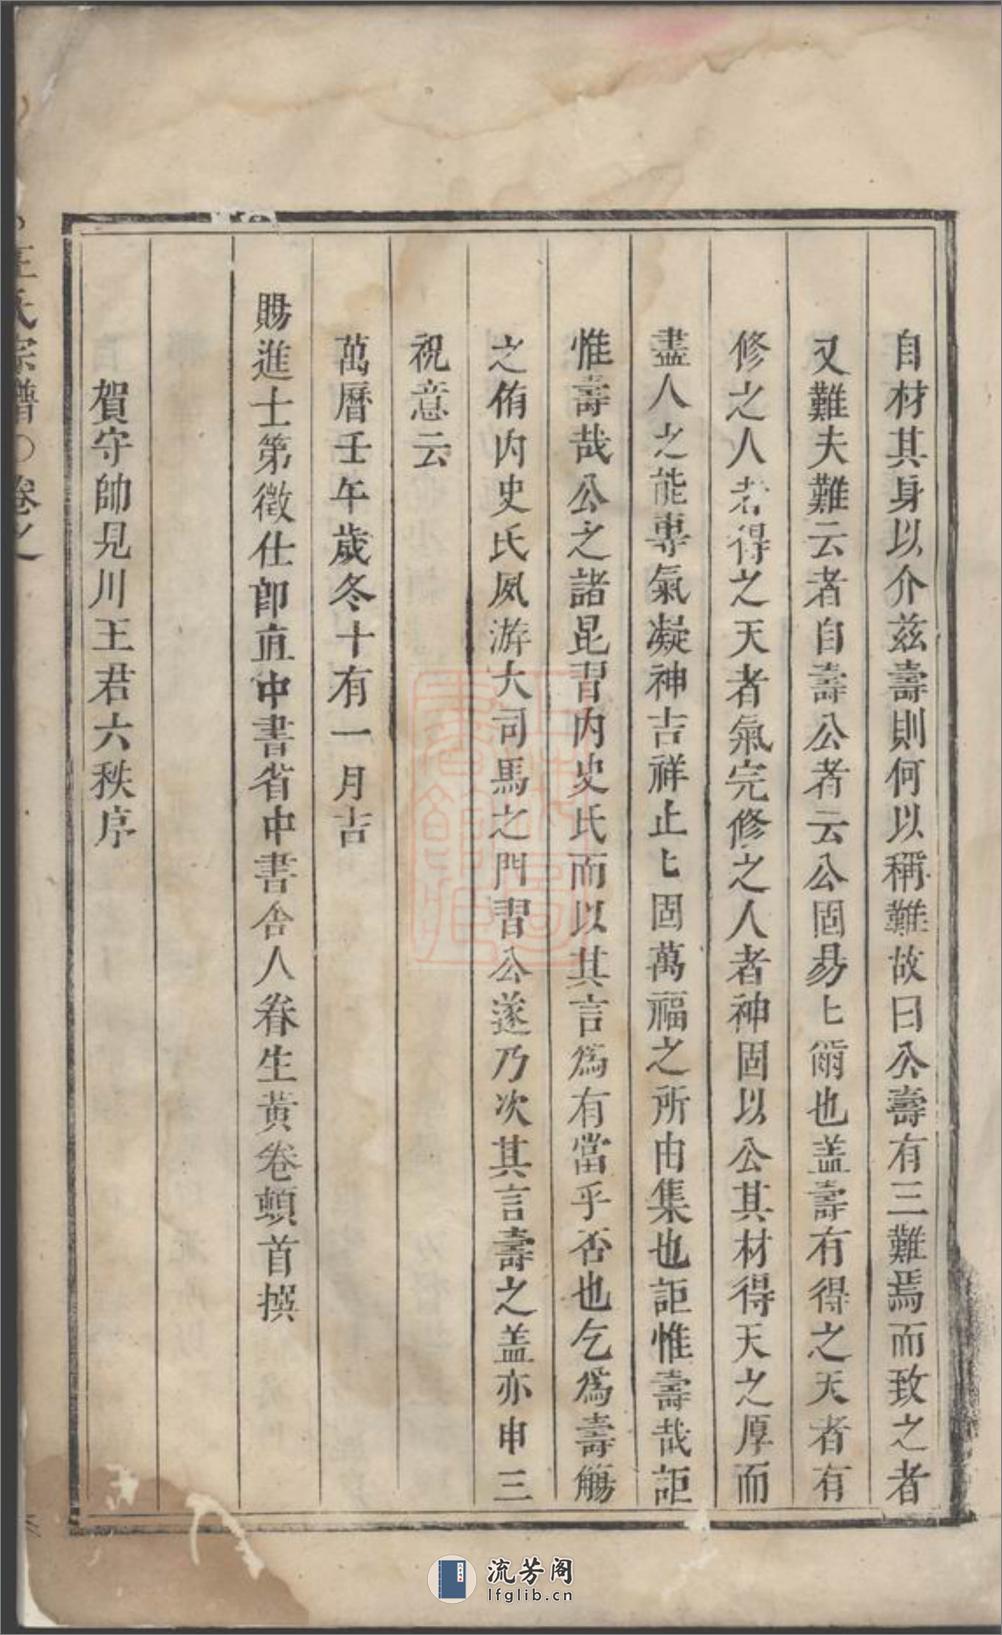 自材其身以介兹壽則何以稱難故曰公壽有三難焉而致之者
又難夫難云者自壽公者云公固易匕爾也盖壽有得之天者有
修之人者得之天者氣完修之人者神固以公其材得天之厚而
盡人之能專氣凝神吉祥止匕固萬福之所由集也詎惟壽哉詎
惟壽哉公之諸昆習内史氏而以其言爲有當乎否也乞爲壽觴
之侑内史氏夙游大司馬之門習公遂乃次其言壽之盖亦申三
祝意云
萬曆壬午歲冬十有一月吉
賜進士第徵仕郎直中書省中書舍人眷生黃卷頓首撰
賀守帥見川王君六秩序
王氏宗譜 卷之
流芳阁
lfglib.cn